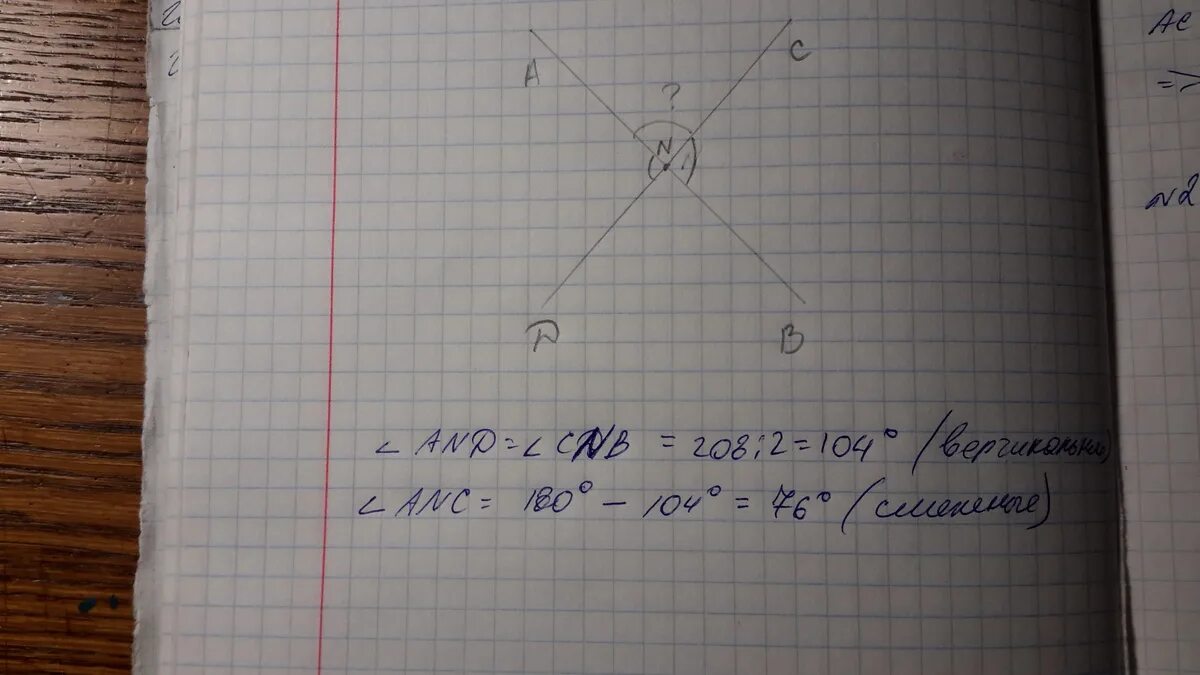 A
C
?
N
D
B
∠ AND = ∠ CNB = 208 : 2 = 104° (вертикальные)
∠ ANC = 180° - 104° = 76° (смежные)
AC
=>
N2